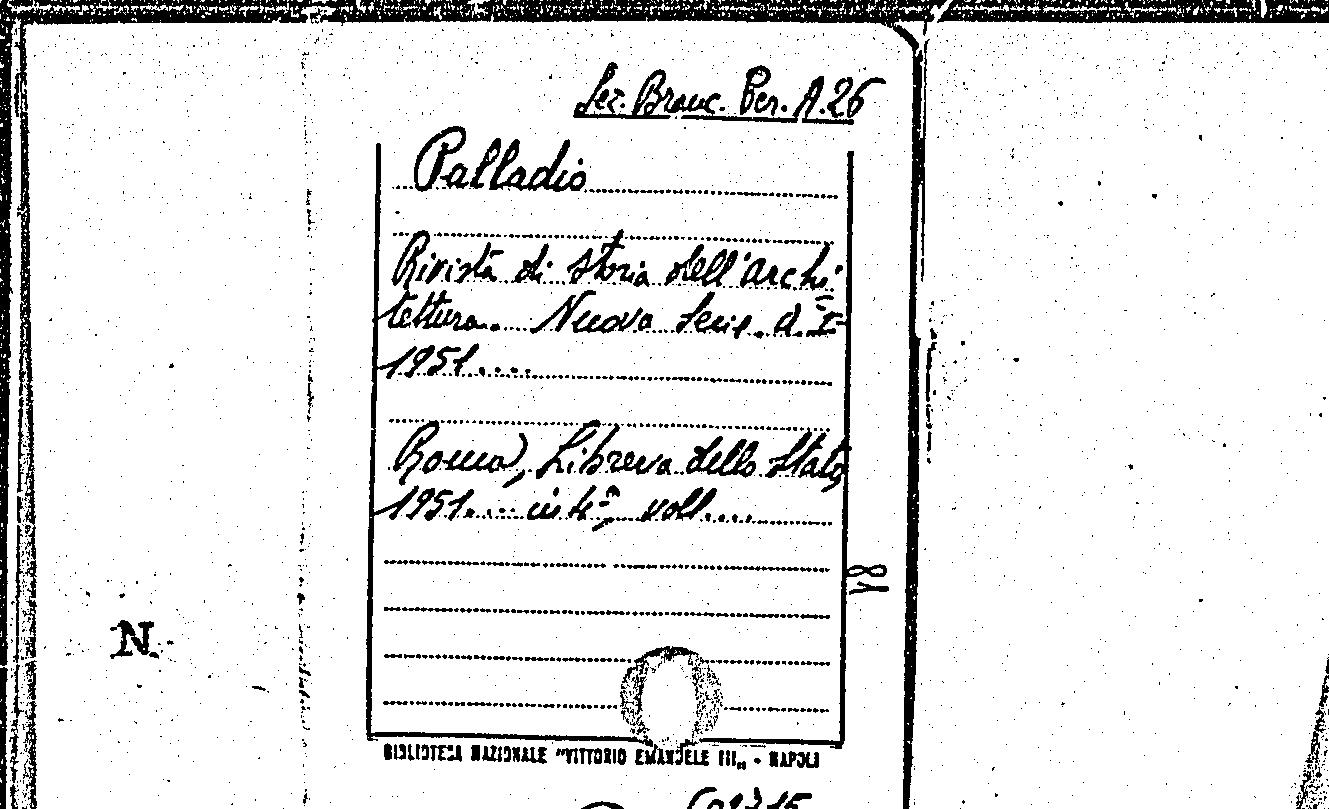 Sez. Branc. Per. A.26
Palladio
Rivista di storia dell'archi-
tettura. Nuova serie. a. I-
1951....
Roma, Libreria dello Stato,
1951.... in 4º, voll....
N.
BIBLIOTECA NAZIONALE "VITTORIO EMANUELE III„ - NAPOLI